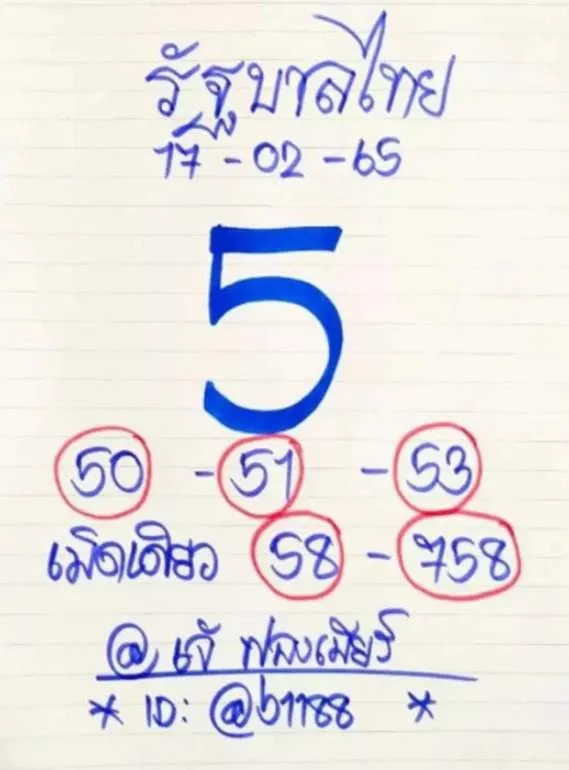 รัฐบาลไทย
17-02-65
5
50 - 51 - 53
เม็ดเดียว 58 - 758
@ เจ๊
* ID: @b1188 *